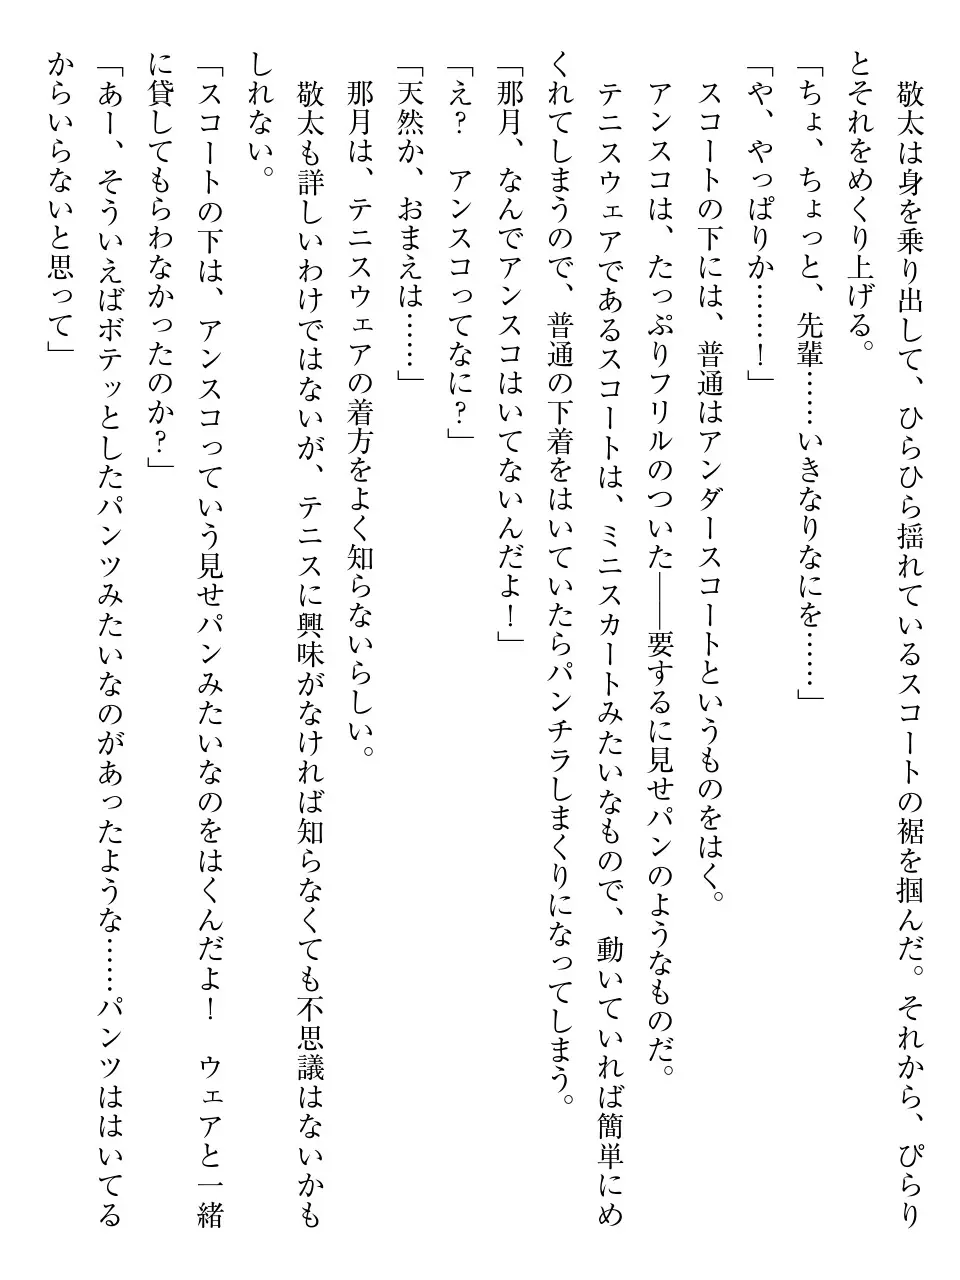 敬太は身を乗り出して、ひらひら揺れているスコートの裾を掴んだ。それから、ぴらり
とそれをめくり上げる。
「ちょ、ちょっと、先輩……いきなりなにを……」
「や、やっぱりか……！」
　スコートの下には、普通はアンダースコートというものをはく。
　アンスコは、たっぷりフリルのついた――要するに見せパンのようなものだ。
　テニスウェアであるスコートは、ミニスカートみたいなもので、動いていれば簡単にめ
くれてしまうので、普通の下着をはいていたらパンチラしまくりになってしまう。
「那月、なんでアンスコはいてないんだよ！」
「え？　アンスコってなに？」
「天然か、おまえは……」
　那月は、テニスウェアの着方をよく知らないらしい。
　敬太も詳しいわけではないが、テニスに興味がなければ知らなくても不思議はないかも
しれない。
「スコートの下は、アンスコっていう見せパンみたいなのをはくんだよ！　ウェアと一緒
に貸してもらわなかったのか？」
「あー、そういえばボテッとしたパンツみたいなのがあったような……パンツははいてる
からいらないと思って」